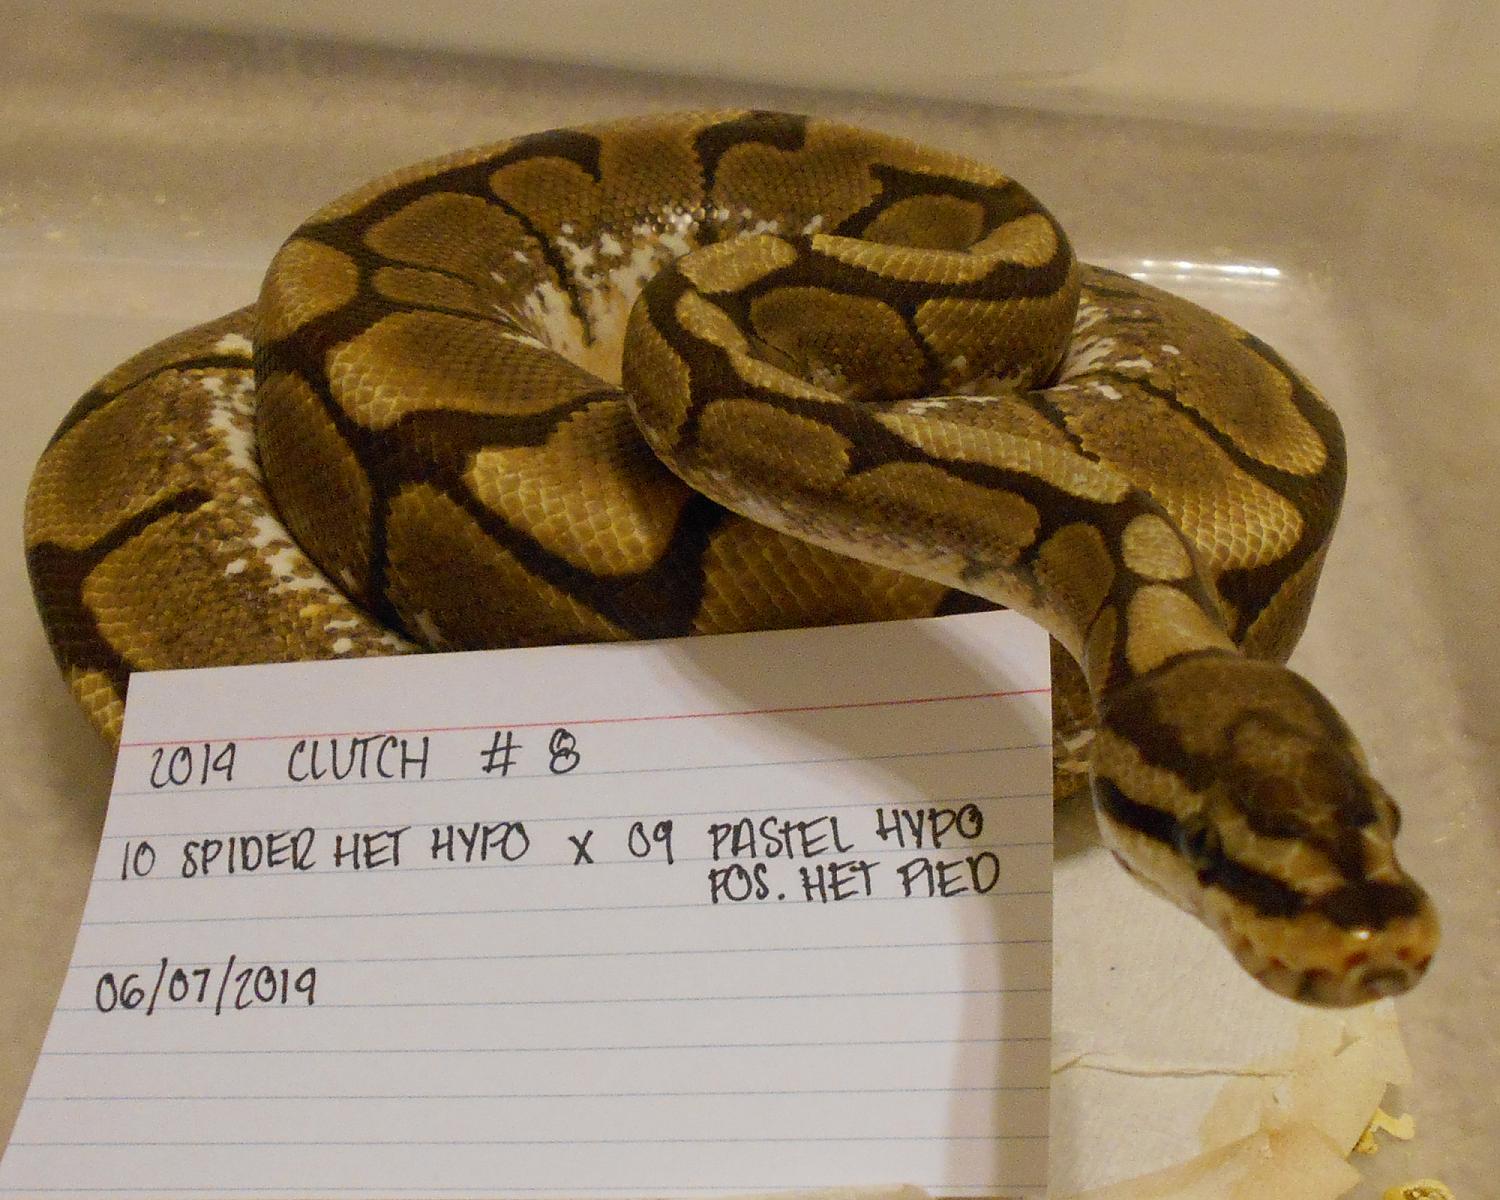 2019 CLUTCH # 8
10 SPIDER HET HYPO X 09 PASTEL HYPO
POS. HET PIED
06/07/2019